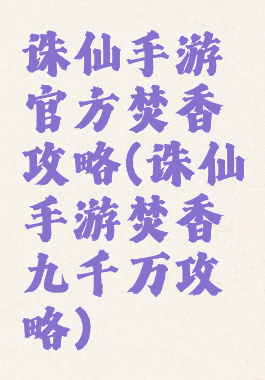 诛仙手游
官方焚香
攻略(诛仙
手游焚香
九千万攻
略)